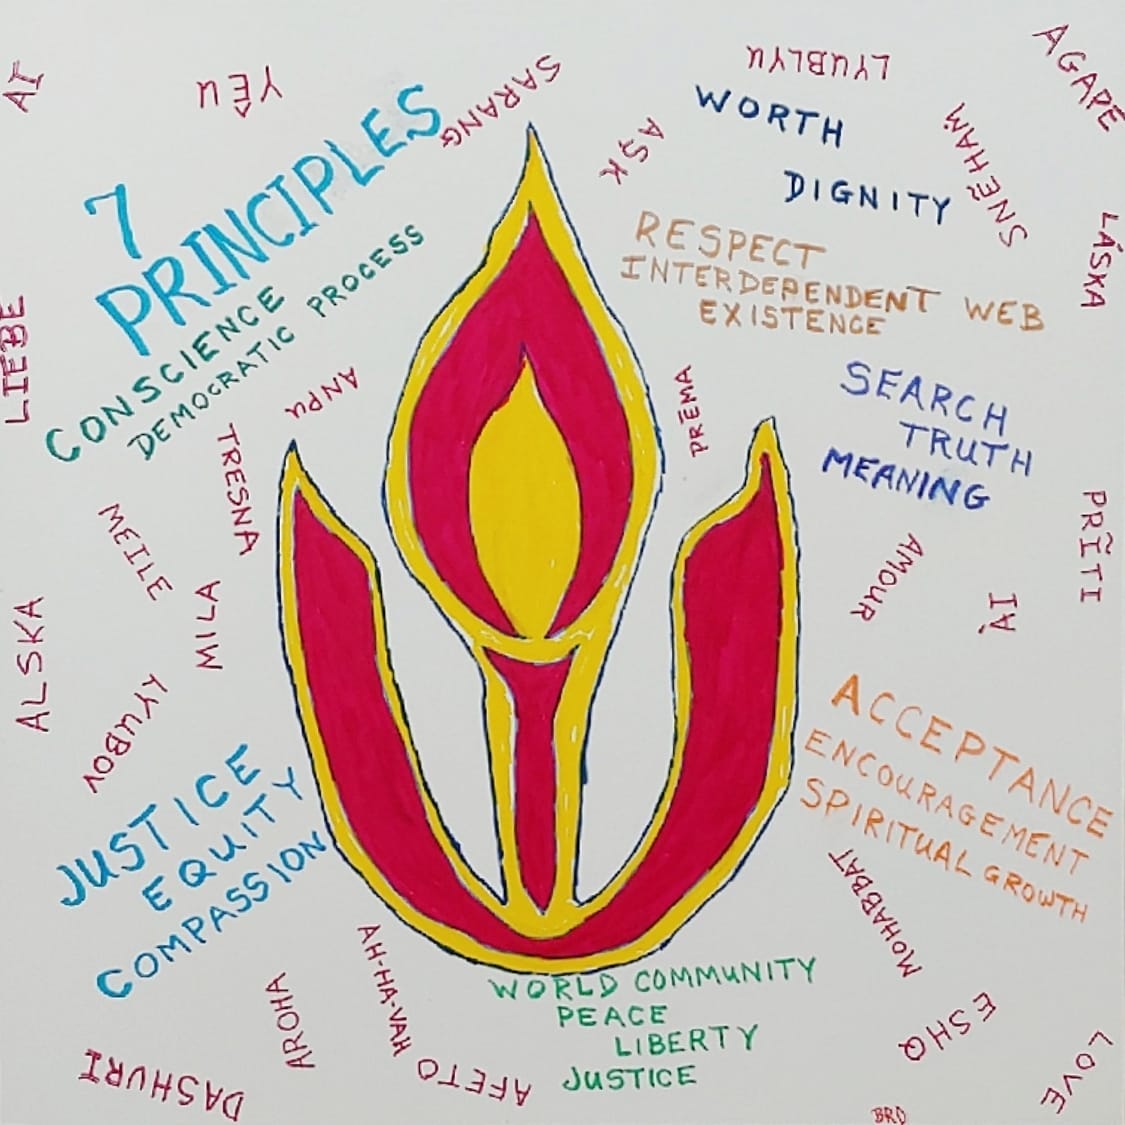 AI
YÊU
SARANG
LYUBLYU
AGAPE
7
PRINCIPLES
AŞK
WORTH
DIGNITY
SNEHAM
RESPECT
INTERDEPENDENT WEB
EXISTENCE
LÁSKA
LIEBE
CONSCIENCE
DEMOCRATIC PROCESS
ANPU
PREMA
SEARCH
TRUTH
MEANING
TRESNA
MEILE
AMOUR
PRĪTI
ALSKA
MILA
LYUBOV
ACCEPTANCE
ENCOURAGEMENT
SPIRITUAL GROWTH
JUSTICE
EQUITY
COMPASSION
MOHABBAT
AH-HA-VAH
AROHA
WORLD COMMUNITY
PEACE
LIBERTY
JUSTICE
ESHQ
LOVE
DASHURI
AFETO
BRD